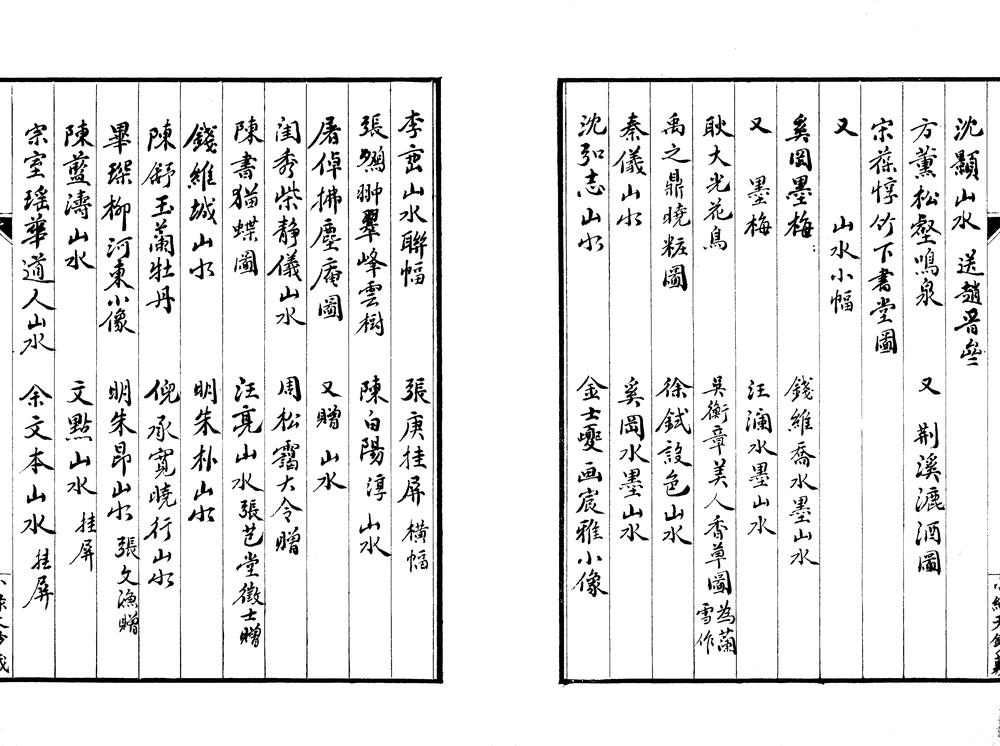 沈顥山水 送趙晉
方薰松壑鳴泉 又 荆溪漉酒圖
宋葆惇竹下書堂圖
又 山水小幅
奚岡墨梅 錢維喬水墨山水
又 墨梅 汪瀾水墨山水
耿大光花鳥 吳衡章美人香草圖 為蘭雪作
禹之鼎曉粧圖 徐鉽設色山水
秦儀山水 奚岡水墨山水
沈弘志山水 金士夔画宸雅小像
李 山水聯幅 張庚挂屏 橫幅
張鵷翀翠峰雲樹 陳白陽淳 山水
屠倬拂塵庵圖 又贈 山水
閨秀柴静儀山水 周松靄大令贈
陳書猫蝶圖 汪亮山水 張芑堂徵士贈
錢維城山水 明朱朴山水
陳舒玉蘭牡丹 倪承寬曉行山水
畢琛柳河東小像 明朱昂山水 張文漁贈
陳藍濤山水 文點山水 挂屏
宗室瑤華道人山水 余文本山水 挂屏